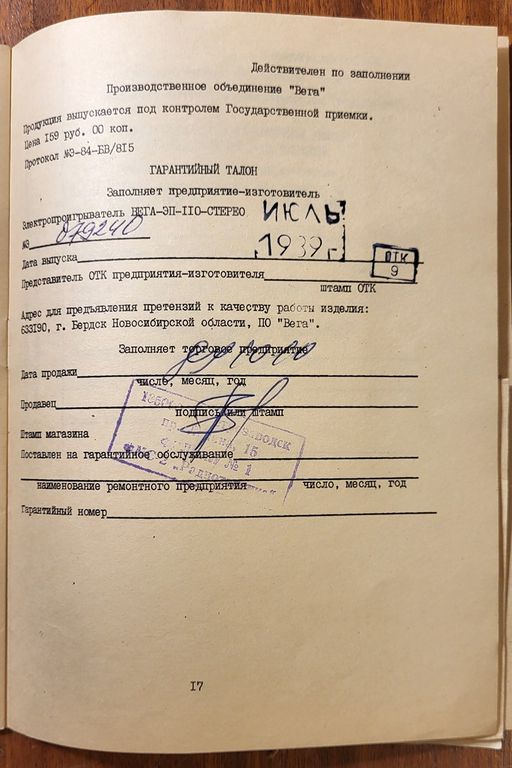 Действителен по заполнении
Производственное объединение "Вега"
Продукция выпускается под контролем Государственной приемки.
Цена 159 руб. 00 коп.
Протокол №Э-84-БВ/815
ГАРАНТИЙНЫЙ ТАЛОН
Заполняет предприятие-изготовитель
Электропроигрыватель ВЕГА-ЭП-110-СТЕРЕО
ИЮЛЬ
№З 079240
1989 г.
Дата выпуска
ОТК
9
Представитель ОТК предприятия-изготовителя
штамп ОТК
Адрес для предъявления претензий к качеству работы изделия:
633190, г. Бердск Новосибирской области, ПО "Вега".
Заполняет торговое предприятие
Дата продажи
число, месяц, год
Продавец
подпись или штамп
Штамп магазина
15
№ 1
Поставлен на гарантийное обслуживание
наименование ремонтного предприятия число, месяц, год
Гарантийный номер
17